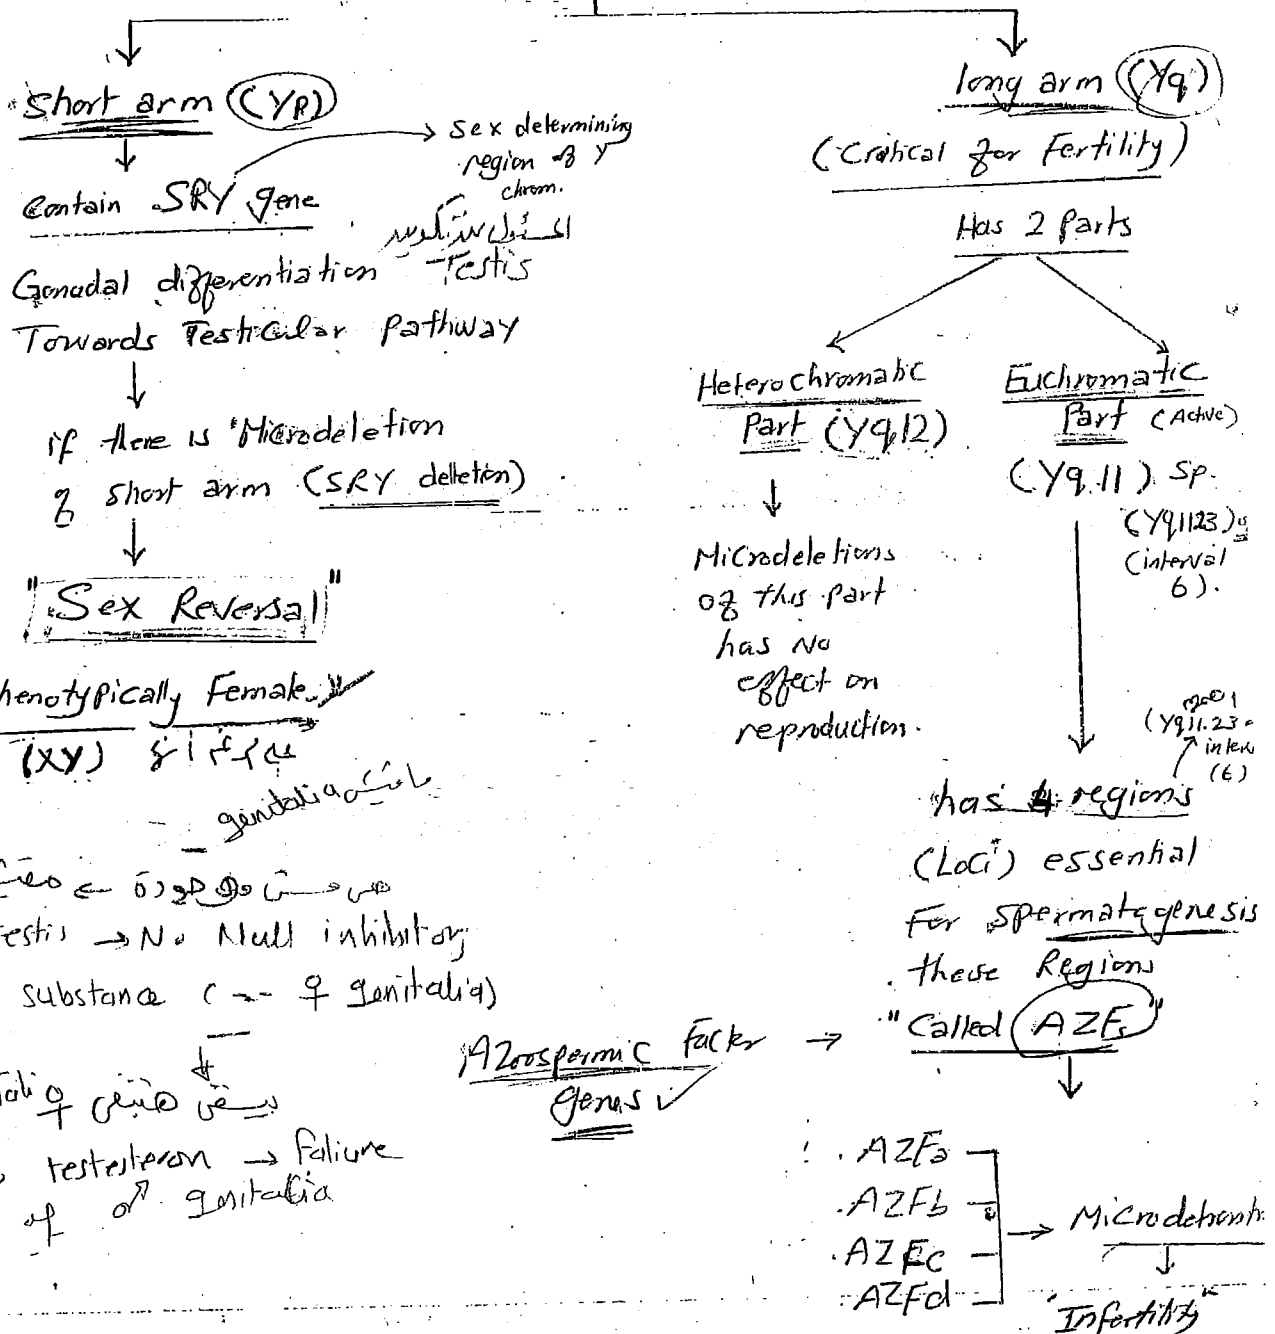 Short arm (YP)
→ sex determining
region of Y
chrom.
Contain SRY gene
المسئول عن تكوين
Testis
Gonadal differentiation
Towards Testicular Pathway
if there is Microdeletion
of short arm (SRY deletion)
"Sex Reversal"
henotypically Female
(XY)
genitalia مافيش
هي مش موجودة ←
estis → No Mull inhibitory
substance (-- ♀ genitalia)
♀ يبقى هتبقى
testesteron → faliure
of ♂ genitalia
long arm (Yq)
(Critical for Fertility)
Has 2 Parts
Heterochromatic
Part (Yq12)
Microdeletions
of this part
has No
effect on
reproduction.
Euchromatic
Part (Active)
(Yq.11) sp.
(Yq1123)
(interval
6).
(Yq11.23
inter
(6)
has 4 regions
(Loci) essential
For spermatogenesis
these Regions
"Called AZFs"
Azoospermic Factor →
genes ✓
AZFa
AZFb
AZFc
AZFd
→
"Infertility"